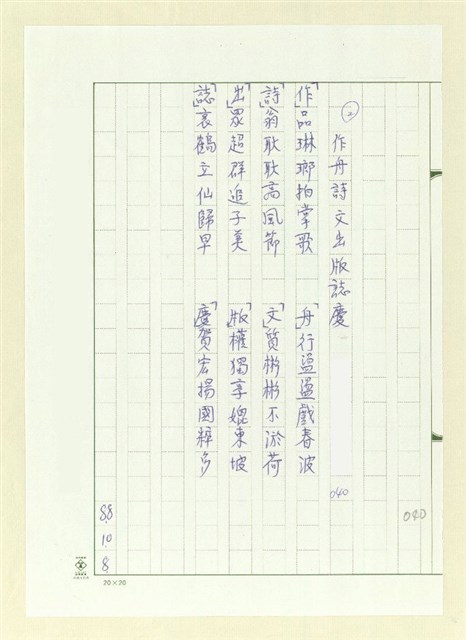 040
② 作舟詩文出版誌慶 040
「作」品琳瑯拍掌歌 「舟」行盪盪戲春波
「詩」翁耿耿高風節 「文」質彬彬不淤荷
「出」眾超群追子美 「版」權獨享媲東坡
「誌」哀鶴立仙歸早 「慶」賀宏揚國粹多
88. 10. 8.
20×20